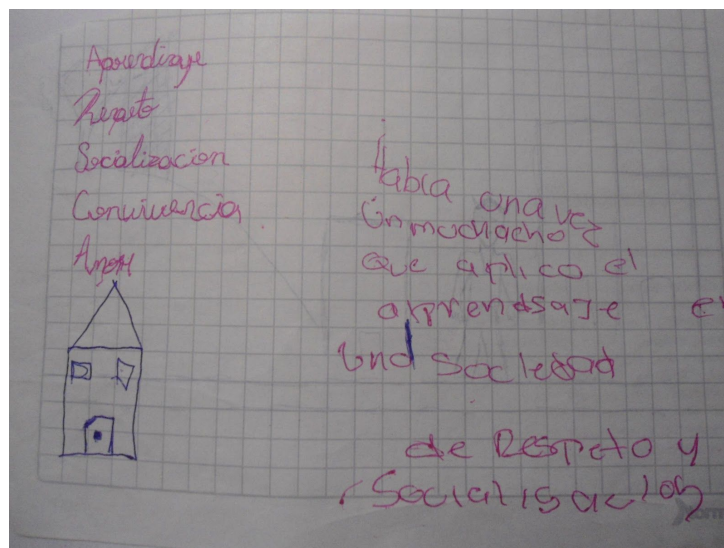 Aprendizaje
Respeto
Socializacion
Convivencia
Amor
Había una vez
Un muchacho
que aplico el
aprendsaje e
una Sociedad
de Respeto y
Socialisacion